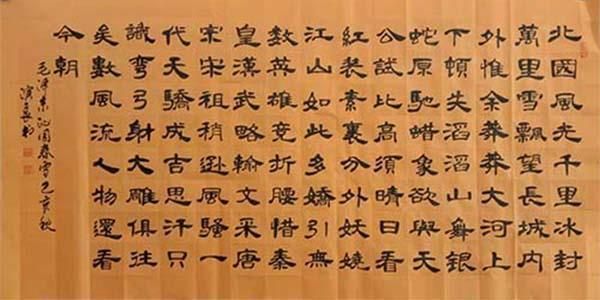 北國風光千里冰封
萬里雪飄望長城内
外惟余莽莽大河上
下頓失滔滔山舞銀
蛇原馳蜡象欲與天
公試比高須晴日看
紅裝素裹分外妖嬈
江山如此多嬌引無
数英雄竞折腰惜秦
皇漢武略輸文采唐
宗宋祖稍遜風騷一
代天驕成吉思汗只
識彎弓射大雕俱往
矣數風流人物還看
今朝
毛澤東沁園春雪己亥秋